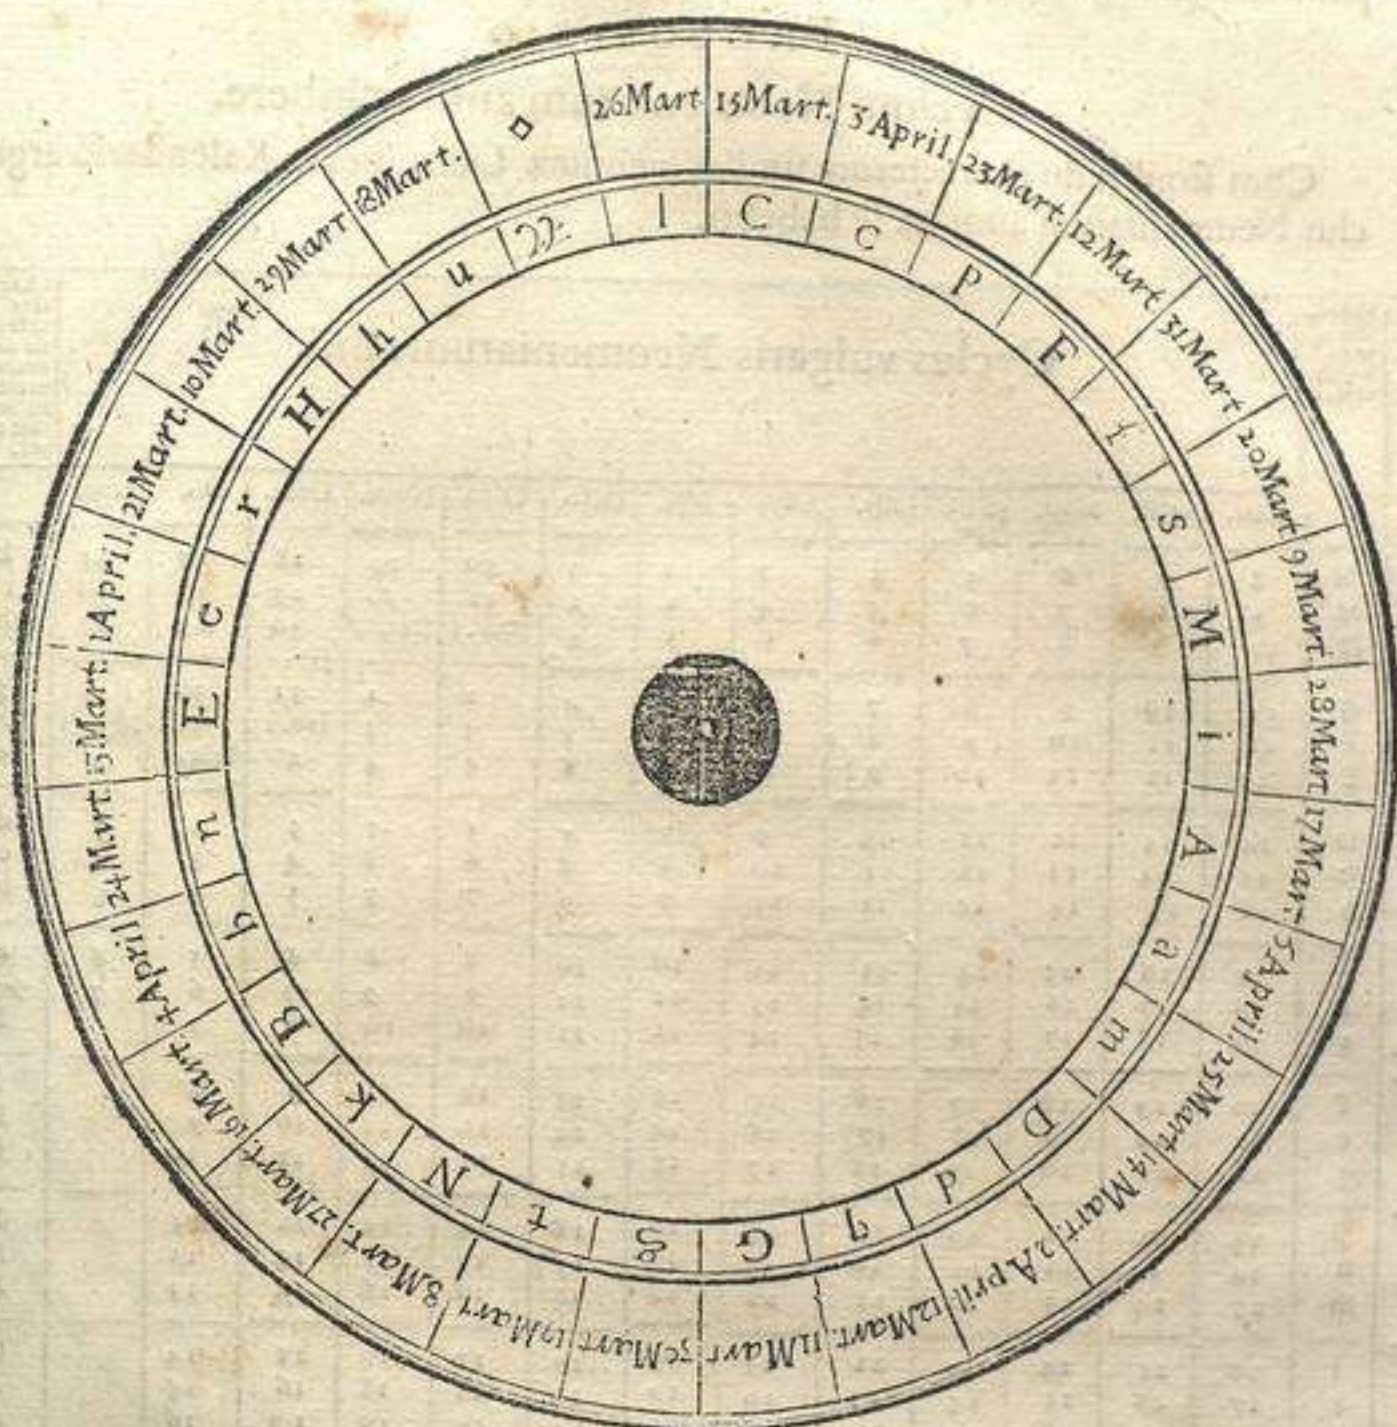 26Mart
15Mart.
3 April.
23Mart.
12 Mart
31 Mart
20Mart
9 Mart.
28Mart
17Mart.
5 April.
25Mart
14 Mart.
2 April
12Mart.
11Mart
30Mart
19Mart
8Mart.
27Mart.
16 Mart
4 April
24Mart
13Mart.
1 April.
21Mart.
10Mart.
29Mart
18Mart.
l
C
c
p
F
f
s
M
i
A
a
m
D
d
q
G
g
t
N
k
B
b
n
E
c
r
H
h
u
vulgaris